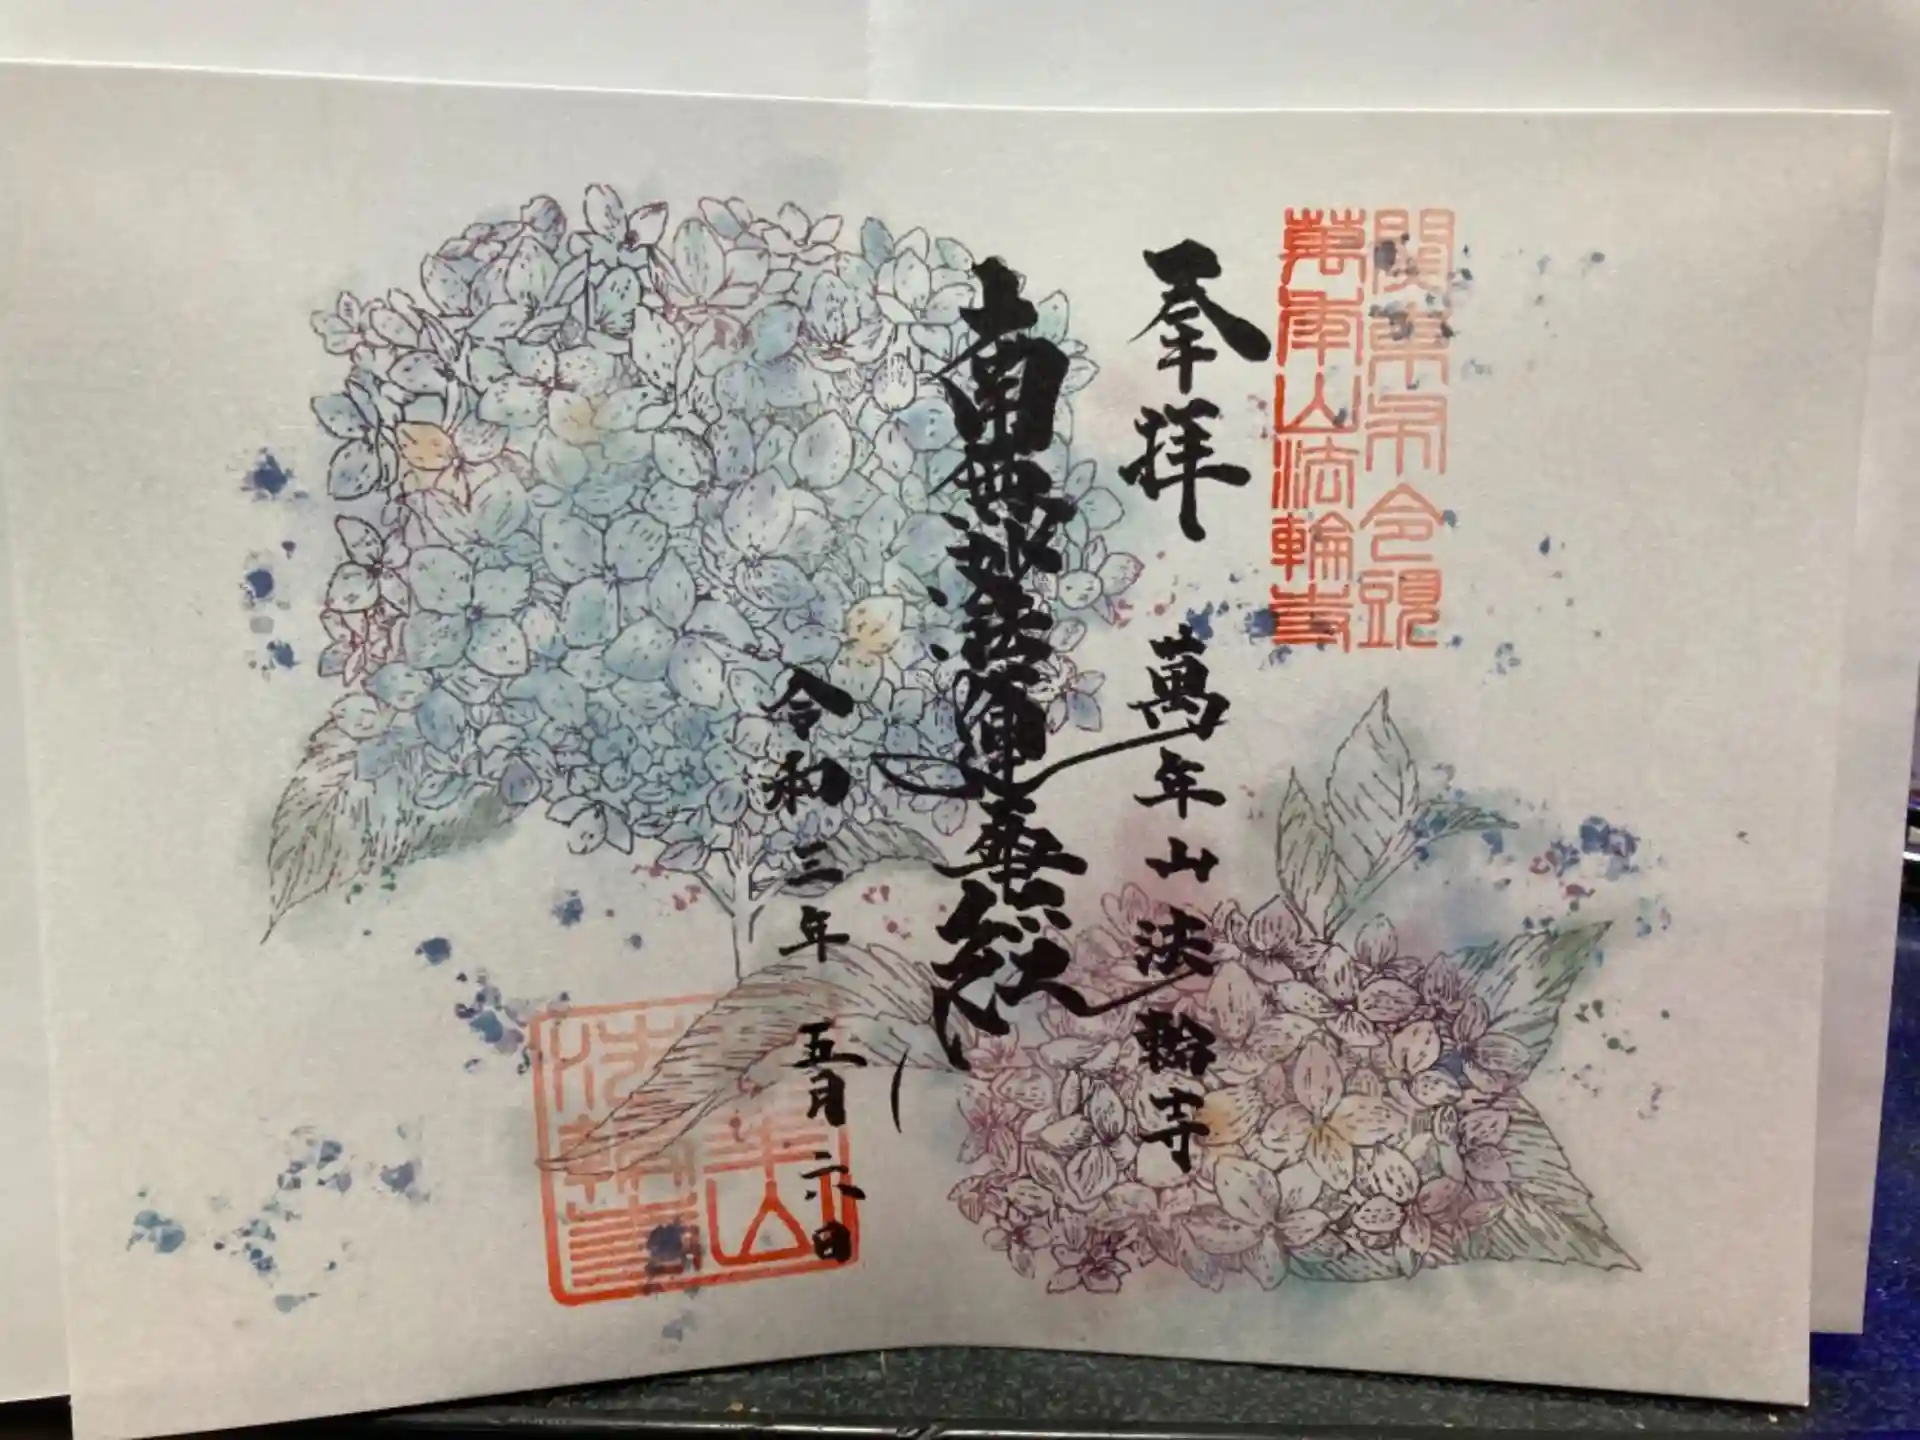 関東布令頭
萬年山法輪寺
奉拝 萬年山法輪寺
南無妙法蓮華経
令和三年 五月 六日
萬年山
法輪寺